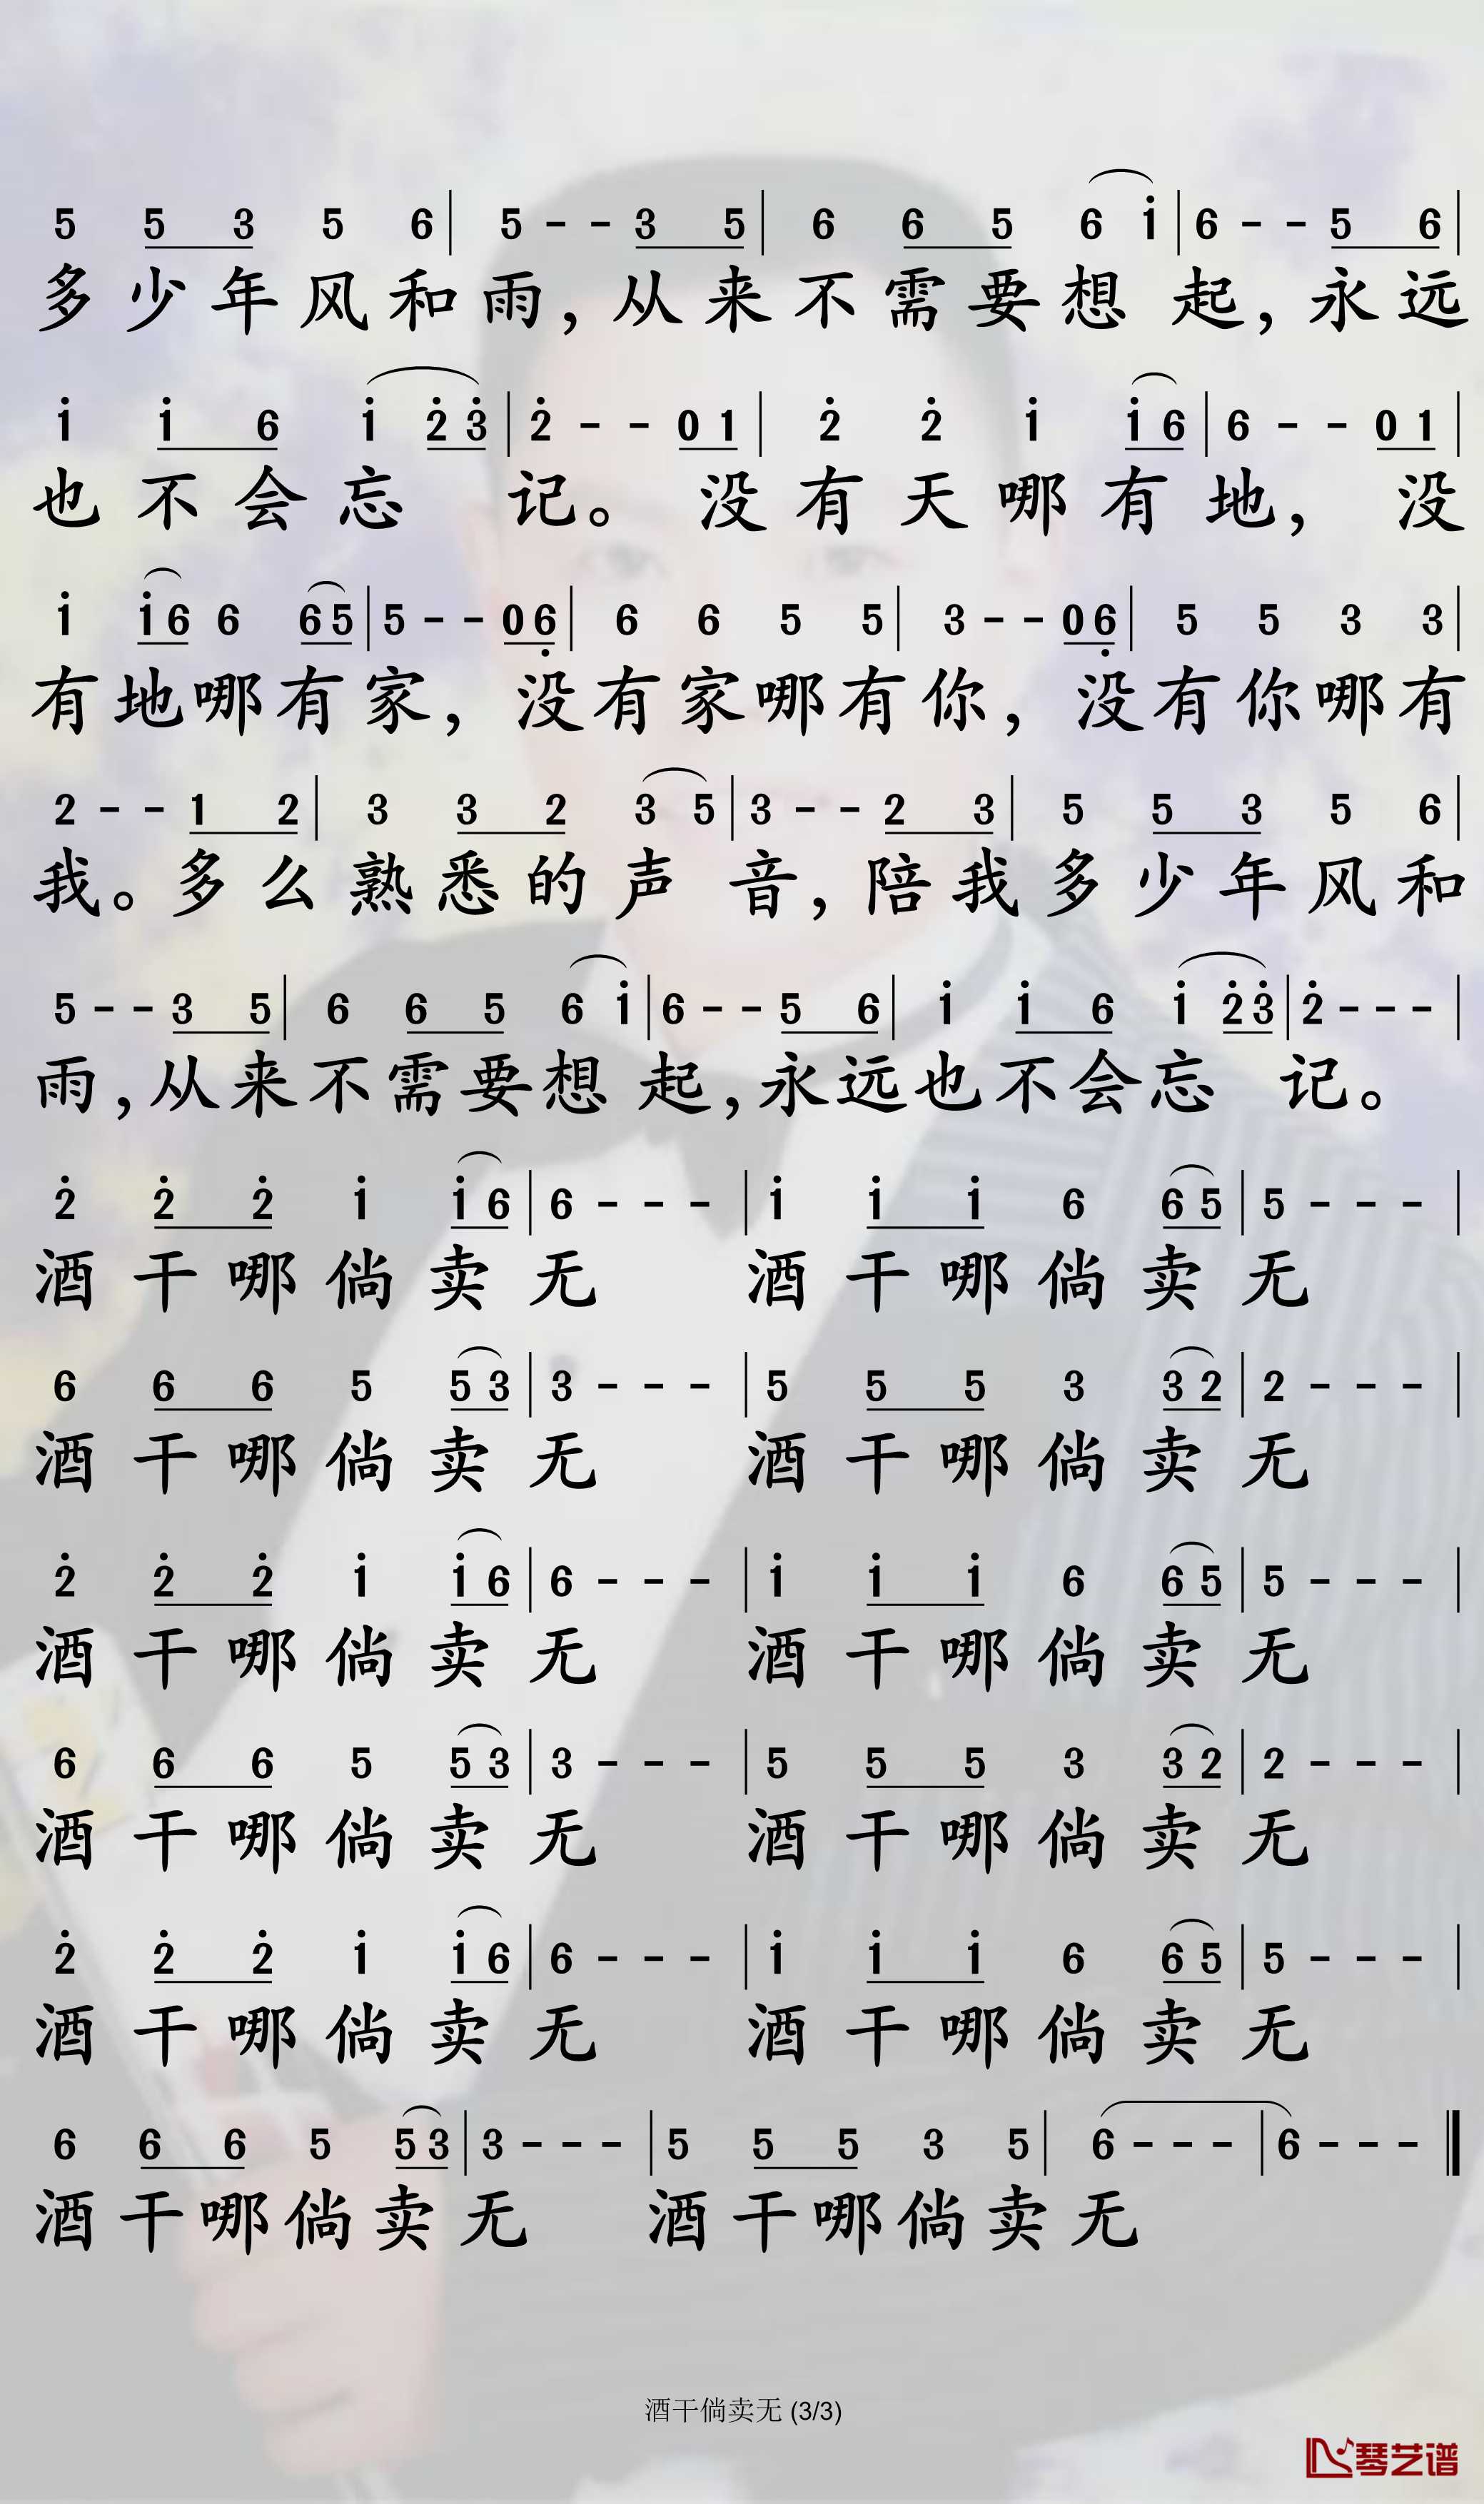 5 5 3 5 6 | 5 - - 3 5 | 6 6 5 6 i | 6 - - 5 6 |
多少年风和雨,从来不需要想起,永远
i i 6 i 2̇ 3̇ | 2̇ - - 0 1 | 2̇ 2̇ i i 6 | 6 - - 0 1 |
也不会忘记。没有天哪有地,没
i i 6 6 6 5 | 5 - - 0 6̣ | 6 6 5 5 | 3 - - 0 6̣ | 5 5 3 3 |
有地哪有家,没有家哪有你,没有你哪有
2 - - 1 2 | 3 3 2 3 5 | 3 - - 2 3 | 5 5 3 5 6 |
我。多么熟悉的声音,陪我多少年风和
5 - - 3 5 | 6 6 5 6 i | 6 - - 5 6 | i i 6 i 2̇ 3̇ | 2̇ - - - |
雨,从来不需要想起,永远也不会忘记。
2̇ 2̇ 2̇ i i 6 | 6 - - - | i i i 6 6 5 | 5 - - - |
酒干哪倘卖无 酒干哪倘卖无
6 6 6 5 5 3 | 3 - - - | 5 5 5 3 3 2 | 2 - - - |
酒干哪倘卖无 酒干哪倘卖无
2̇ 2̇ 2̇ i i 6 | 6 - - - | i i i 6 6 5 | 5 - - - |
酒干哪倘卖无 酒干哪倘卖无
6 6 6 5 5 3 | 3 - - - | 5 5 5 3 3 2 | 2 - - - |
酒干哪倘卖无 酒干哪倘卖无
2̇ 2̇ 2̇ i i 6 | 6 - - - | i i i 6 6 5 | 5 - - - |
酒干哪倘卖无 酒干哪倘卖无
6 6 6 5 5 3 | 3 - - - | 5 5 5 3 5 | 6 - - - | 6 - - - ‖
酒干哪倘卖无 酒干哪倘卖无
酒干倘卖无 (3/3)
琴艺谱